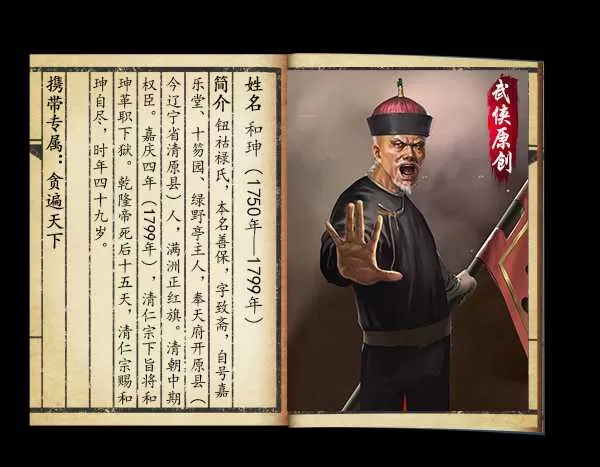 姓名 和珅（1750年—1799年）
简介 钮祜禄氏，本名善保，字致斋，自号嘉
乐堂、十笏园、绿野亭主人，奉天府开原县（
今辽宁省清原县）人，满洲正红旗。清朝中期
权臣。嘉庆四年（1799年），清仁宗下旨将和
珅革职下狱。乾隆帝死后十五天，清仁宗赐和
珅自尽，时年四十九岁。
携带专属：贪遍天下
武侠原创